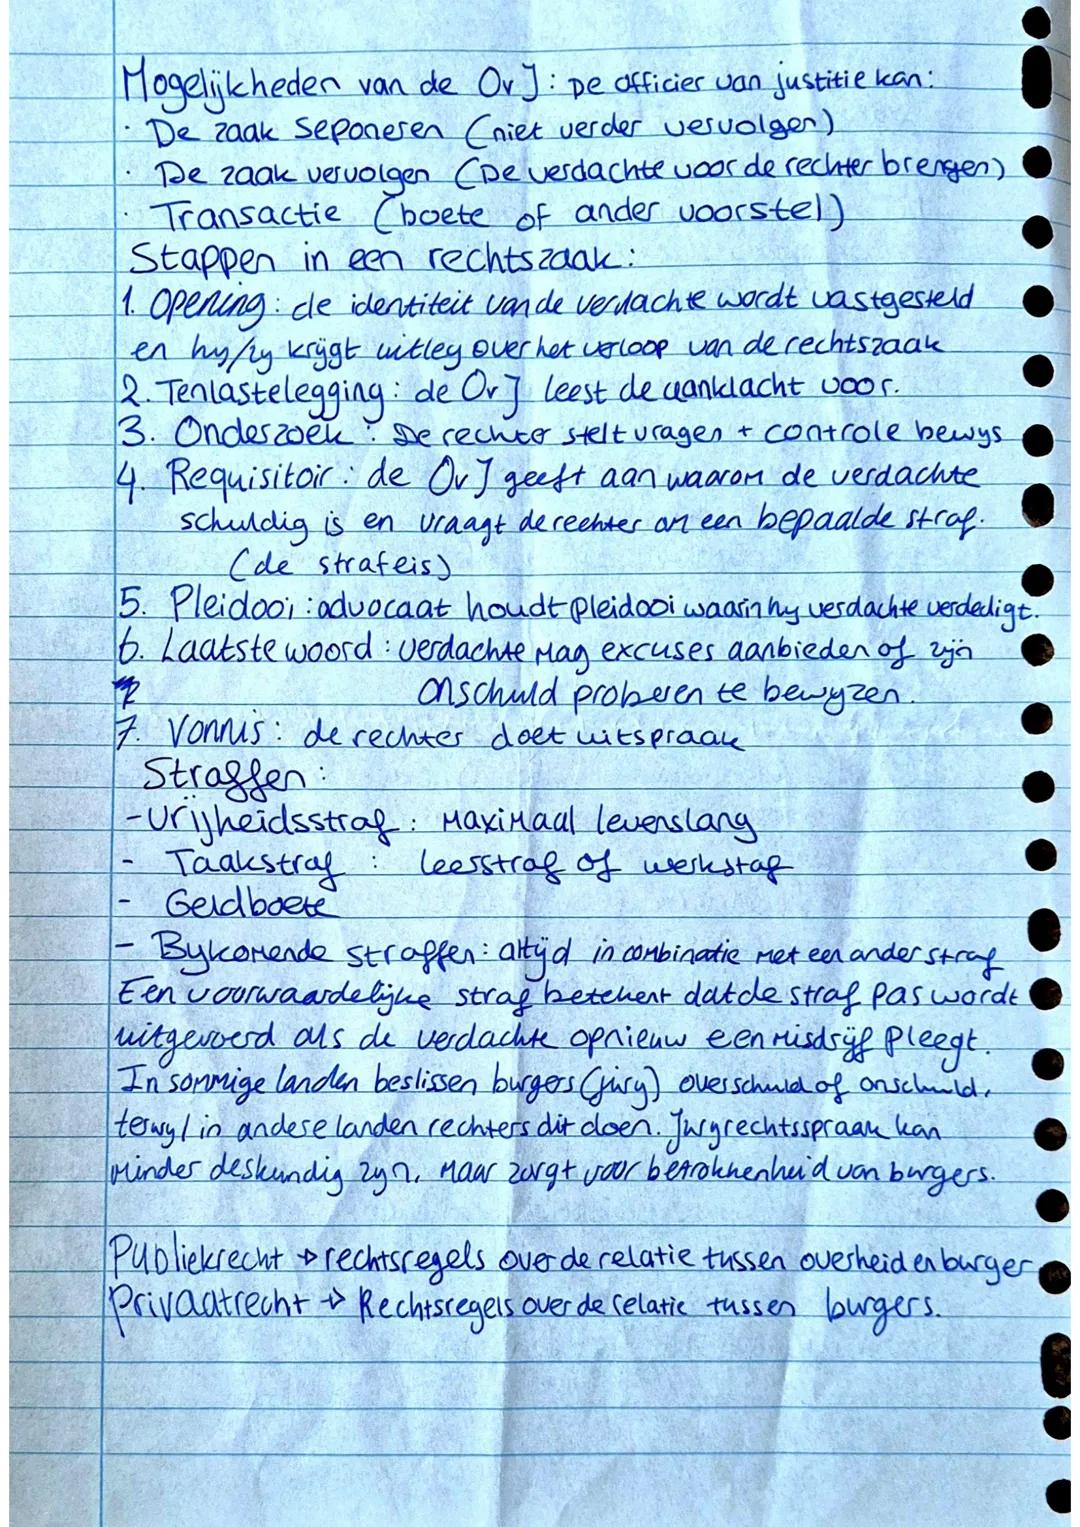 Mogelijkheden van de OvJ: De officier van justitie kan:
· De zaak Seponeren (niet verder vervolgen)
· De zaak vervolgen (De verdachte voor de rechter brengen)
· Transactie (boete of ander voorstel)
Stappen in een rechtszaak:
1. Opening: de identiteit van de verdachte wordt vastgesteld
en hy/zy krijgt uitleg over het verloop van de rechtszaak
2. Tenlastelegging: de OvJ leest de aanklacht voor.
3. Onderzoek: De rechter stelt vragen + controle bewys
4. Requisitoir: de OvJ geeft aan waarom de verdachte
schuldig is en vraagt de rechter om een bepaalde straf.
(de strafeis)
5. Pleidooi: advocaat houdt pleidooi waarin hy verdachte verdedigt.
6. Laatste woord: verdachte mag excuses aanbieden of zijn
onschuld proberen te bewyzen.
7. Vonnis: de rechter doet uitspraak
Straffen:
- Vrijheidsstraf: Maximaal levenslang
- Taakstraf: leerstraf of werkstaf
- Geldboete
- Bykomende straffen: altijd in combinatie met een ander straf
Een voorwaardelijke straf betekent dat de straf pas wordt
uitgevoerd als de verdachte opnieuw een misdrijf pleegt.
In sommige landen beslissen burgers (jury) over schuld of onschuld,
terwyl in andere landen rechters dit doen. Juryrechtsspraak kan
minder deskundig zyn, maar zorgt voor betrokkenheid van burgers.
Publiekrecht → rechtsregels over de relatie tussen overheid en burger
Privaatrecht → Rechtsregels over de relatie tussen burgers.